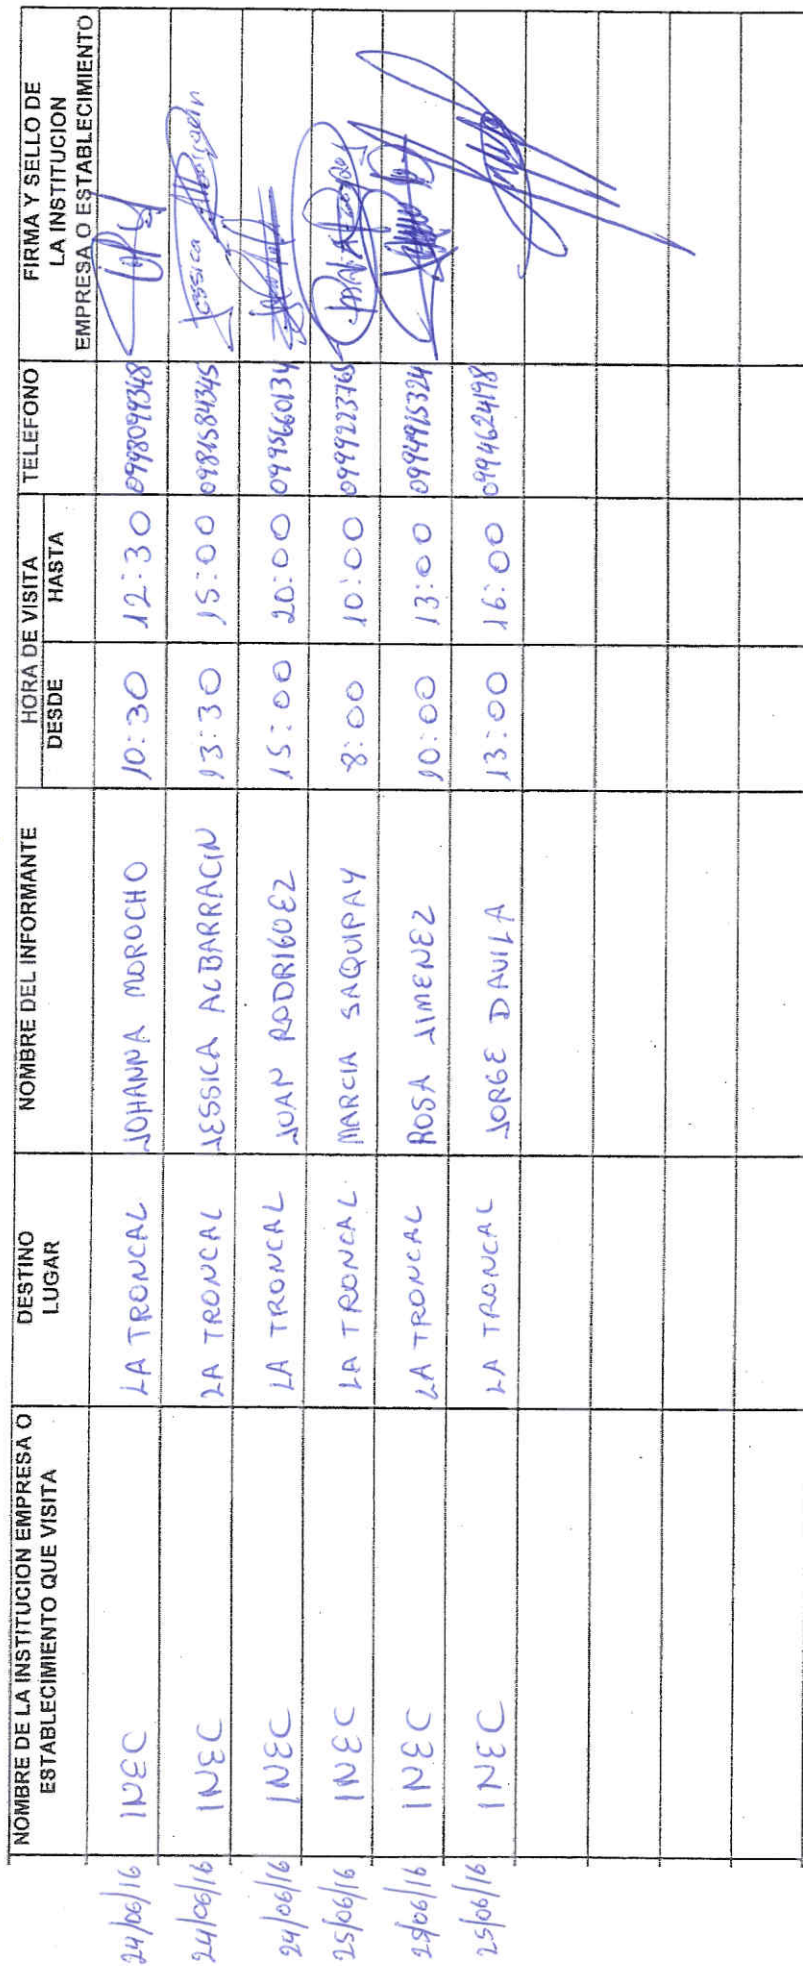 NOMBRE DE LA INSTITUCION EMPRESA O ESTABLECIMIENTO QUE VISITA | DESTINO LUGAR | NOMBRE DEL INFORMANTE | HORA DE VISITA DESDE | HASTA | TELEFONO | FIRMA Y SELLO DE LA INSTITUCION EMPRESA O ESTABLECIMIENTO
24/06/16 INEC LA TRONCAL JOHANNA MOROCHO 10:30 12:30 0998099348
24/06/16 INEC LA TRONCAL JESSICA ALBARRACIN 13:30 15:00 0981584345 Jessica Albarracin
24/06/16 INEC LA TRONCAL JUAN RODRIGUEZ 15:00 20:00 0995660134
25/06/16 INEC LA TRONCAL MARCIA SAQUIPAY 8:00 10:00 0999223765
25/06/16 INEC LA TRONCAL ROSA JIMENEZ 10:00 13:00 0994915324
25/06/16 INEC LA TRONCAL JORGE DAVILA 13:00 16:00 0994624198